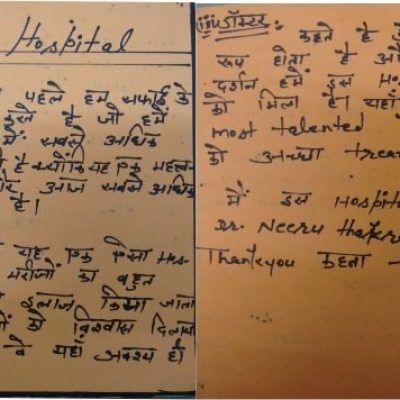 Hospital
पहले हम सफाई को
है जो हमें
में सबसे अधिक
है क्योंकि यह एक
आज सबसे अधिक
है।
यह एक ऐसा Hos-
मरीजों का बहुत
इलाज किया जाता
को विश्वास दिलाया
वे यहां अवश्य हो
डॉक्टर कहते हैं
रूप होता है और
दर्शन हमें इस Ho
को मिला है। यहां
most talented
को अच्छा treat
मैं इस Hospita
Dr. Neeru
Thankyou कहता